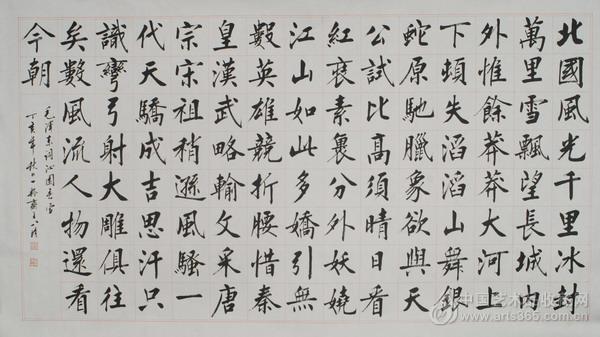 北國風光千里冰封
萬里雪飄望長城內
外惟餘莽莽大河上
下頓失滔滔山舞銀
蛇原馳臘象欲與天
公試比高須晴日看
紅素裹分外妖嬈
江山如此多嬌引無
數英雄競折腰惜秦
皇漢武略輸文采唐
宗宋祖稍遜風騷一
代天驕成吉思汗只
識彎弓射大雕俱往
矣數風流人物還看
今朝
毛澤東詞沁園春雪
丁亥年秋
中国艺术品收藏网
www.arts365.com.cn